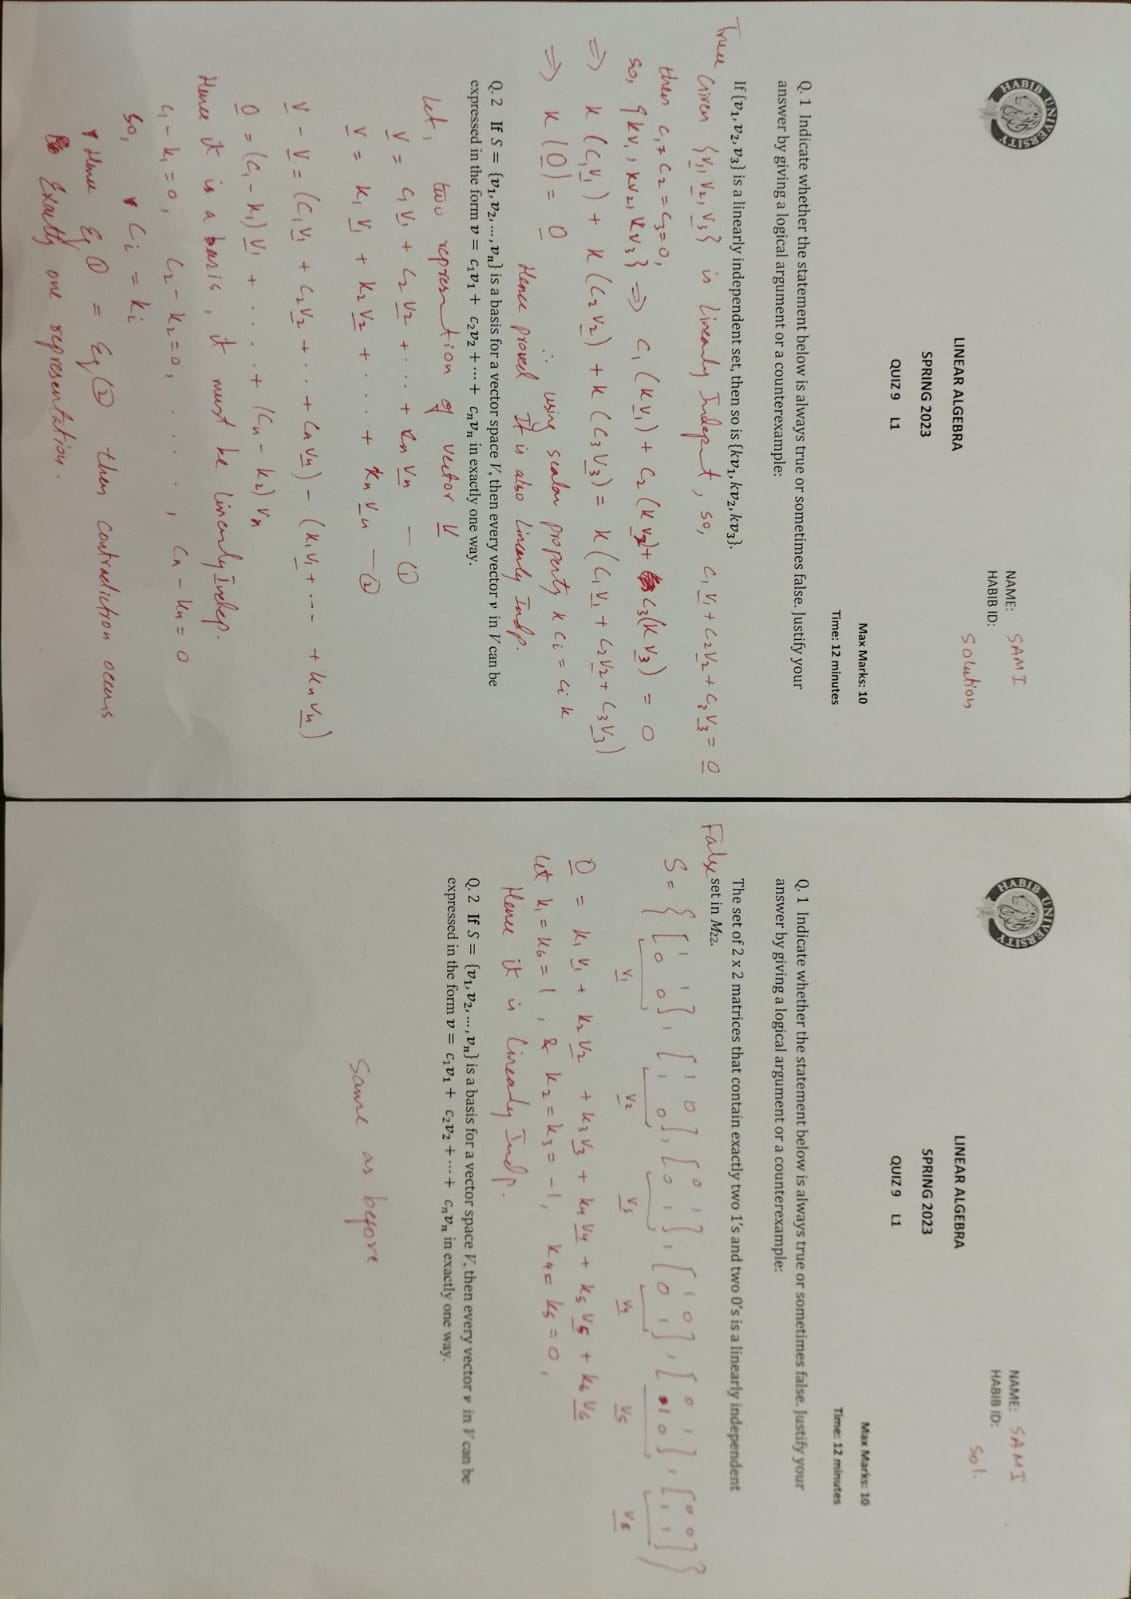 HABIB UNIVERSITY
NAME: SAMI
HABIB ID:
Solution
LINEAR ALGEBRA
SPRING 2023
QUIZ 9 L1
Max Marks: 10
Time: 12 minutes
Q. 1 Indicate whether the statement below is always true or sometimes false. Justify your
answer by giving a logical argument or a counterexample:
If {v₁, v₂, v₃} is a linearly independent set, then so is {kv₁, kv₂, kv₃}.
True
Given {v₁, v₂, v₃} is Linearly Indepnt, so, c₁v₁ + c₂v₂ + c₃v₃ = 0
then c₁ = c₂ = c₃ = 0,
so, {kv₁, kv₂, kv₃} ⇒ c₁(kv₁) + c₂(kv₂) + c₃(kv₃) = 0
⇒ k(c₁v₁) + k(c₂v₂) + k(c₃v₃) = k(c₁v₁ + c₂v₂ + c₃v₃)
⇒ k(0) = 0 ∴ using scalar property k cᵢ = cᵢ k
Hence proved It is also Linearly Indp.
Q. 2 If S = {v₁, v₂, ..., vₙ} is a basis for a vector space V, then every vector v in V can be
expressed in the form v = c₁v₁ + c₂v₂ + ⋯ + cₙvₙ in exactly one way.
Let, two represntion of vector V
V = c₁v₁ + c₂v₂ + .... + vₙ — ①
V = k₁v₁ + k₂v₂ + .... + kₙvₙ — ②
V - V = (c₁v₁ + c₂v₂ + .. + cₙvₙ) - (k₁v₁ + --- + kₙvₙ)
0 = (c₁ - k₁)v₁ + ..... + (cₙ - k₂)vₙ
Hence it is a basis, it must be linearly Indep.
c₁ - k₁ = 0, c₂ - k₂ = 0, ....., cₙ - kₙ = 0
So, cᵢ = kᵢ
Hence Eq ① = Eq ② then contradiction occurs
Exactly one representation.
HABIB UNIVERSITY
NAME: SAMI
HABIB ID:
Sol.
LINEAR ALGEBRA
SPRING 2023
QUIZ 9 L1
Max Marks: 10
Time: 12 minutes
Q. 1 Indicate whether the statement below is always true or sometimes false. Justify your
answer by giving a logical argument or a counterexample:
The set of 2 x 2 matrices that contain exactly two 1's and two 0's is a linearly independent
False set in M₂₂.
S = {[1 1; 0 0], [1 0; 1 0], [0 1; 0 1], [1 0; 0 1], [0 1; 1 0], [0 0; 1 1]}
v₁ v₂ v₃ v₄ v₅ v₆
0 = k₁v₁ + k₂v₂ + k₃v₃ + k₄v₄ + k₅v₅ + k₆v₆
Let k₁ = k₆ = 1, & k₂ = k₃ = -1, k₄ = k₅ = 0,
Hence it is linearly Indp.
Q. 2 If S = {v₁, v₂, ..., vₙ} is a basis for a vector space V, then every vector v in V can be
expressed in the form v = c₁v₁ + c₂v₂ + ⋯ + cₙvₙ in exactly one way.
Same as before